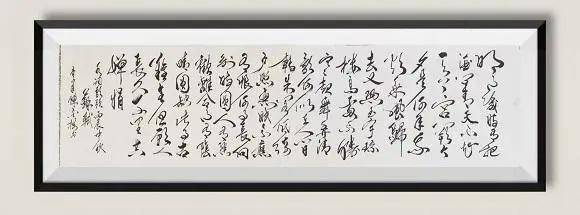 明月幾時有把
酒問青天不知
天上宮闕今
夕是何年我
欲乘風歸
去又恐玉宇瓊
樓高處不勝
寒起舞弄清
影何似在人間
轉朱閣低綺
戶照無眠不應
有恨何事長向
別時圓人有悲
歡離合月有陰
晴圓缺此事古
難全但願人
長久千里共
嬋娟
水調歌頭 中秋
蘇軾